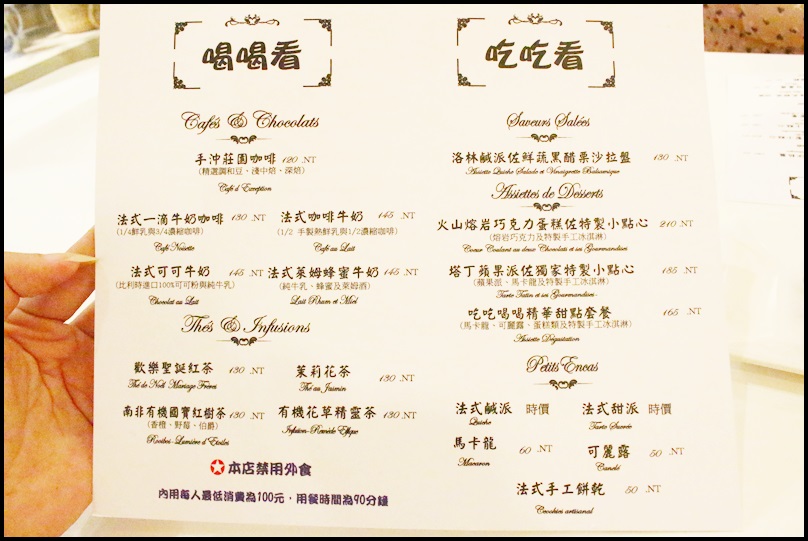 喝喝看
Cafés & Chocolats
手沖莊園咖啡 120 .NT
(精選調和豆、淺中焙、深焙)
Café d'Exception
法式一滴牛奶咖啡 130 .NT
(1/4鮮乳與3/4濃縮咖啡)
Café Noisette
法式咖啡牛奶 145 .NT
(1/2 手製熱鮮乳與1/2濃縮咖啡)
Café au Lait
法式可可牛奶 145 .NT
(比利時進口100%可可粉與純牛乳)
Chocolat au Lait
法式萊姆蜂蜜牛奶 145 .NT
(純牛乳、蜂蜜及萊姆酒)
Lait Rham et Miel
Thés & Infusions
歡樂聖誕紅茶 130 .NT
Thé de Noël Mariage Frères
茉莉花茶 130 .NT
Thé au Jasmin
南非有機國寶紅樹茶 130 .NT
(香橙、野莓、伯爵)
Rooibos-Lumière d'Etoiles
有機花草精靈茶 130 .NT
Infusion-Remède
本店禁用外食
內用每人最低消費為100元，用餐時間為90分鐘
吃吃看
Saveurs Salées
洛林鹹派佐鮮蔬黑醋栗沙拉盤 130 .NT
Assiette Quiche Salade et Vinaigrette Balsamique
Assiettes de Desserts
火山熔岩巧克力蛋糕佐特製小點心 210 .NT
(熔岩巧克力及特製手工冰淇淋)
Coeur Coulant au deux Chocolats et ses Gourmandises
塔丁蘋果派佐獨家特製小點心 185 .NT
(蘋果派、馬卡龍及特製手工冰淇淋)
Tarte Tatin et ses Gourmandises
吃吃喝喝精華甜點套餐 165 .NT
(馬卡龍、可麗露、蛋糕類及特製手工冰淇淋)
Assiette Dégustation
Petits Encas
法式鹹派 時價
Quiche
法式甜派 時價
Tarte Sucrée
馬卡龍 60 .NT
Macaron
可麗露 50 .NT
Canelé
法式手工餅乾 50 .NT
Coookies artisanal